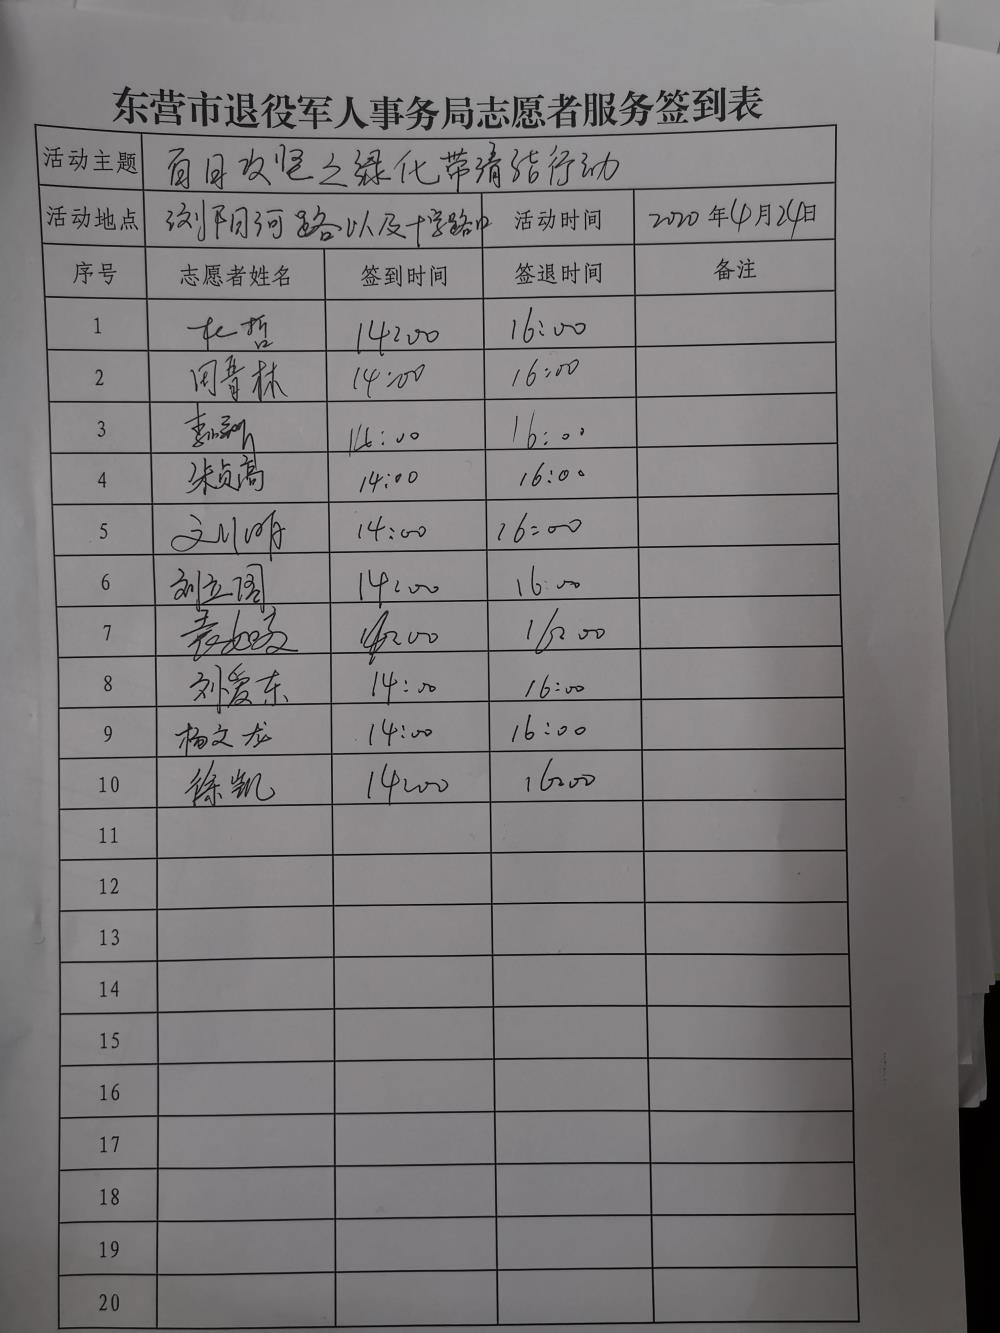 东营市退役军人事务局志愿者服务签到表
活动主题 百日攻坚之绿化带清洁行动
活动地点 浏阳河路以及十字路口 活动时间 2020年4月24日
序号 志愿者姓名 签到时间 签退时间 备注
1 杜哲 14:00 16:00
2 周晋林 14:00 16:00
3 14:00 16:00
4 朱贞高 14:00 16:00
5 文川明 14:00 16:00
6 刘立阁 14:00 16:00
7 14:00 16:00
8 刘爱东 14:00 16:00
9 杨文龙 14:00 16:00
10 徐凯 14:00 16:00
11
12
13
14
15
16
17
18
19
20